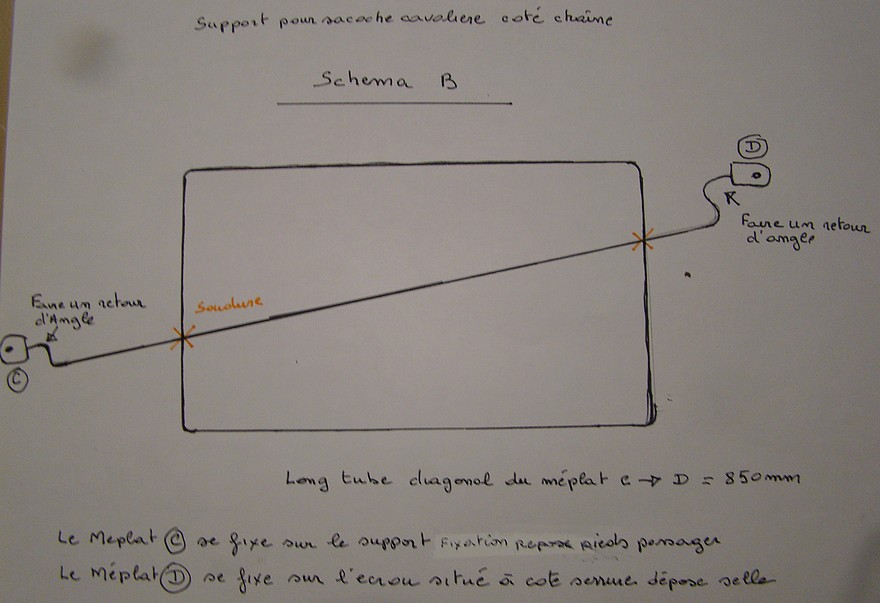 Support pour sacoche cavaliere coté chaîne
Schema B
D
Faire un retour
d'angle
Soudure
Faire un retour
d'Angle
C
Long tube diagonal du méplat C → D = 850mm
Le Meplat C se fixe sur le support Fixation repose pieds passager
Le Méplat D se fixe sur l'ecrou situé à coté serrure dépose selle